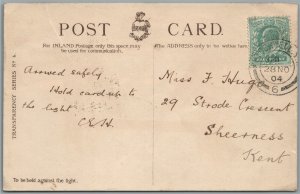 POST CARD.
For INLAND Postage only this space may be used for communication.
The ADDRESS only to be written here.
TRANSPARENCY SERIES No 4.
Arrived safely.
Hold card up to
the light.
C.E.H.
To be held against the light.
Miss F. Huge
29 Strode Crescent
Sheerness
Kent
28 NO
04
6